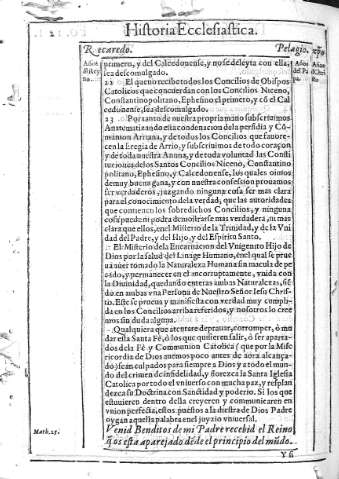 Historia Ecclesiastica.
Recaredo. Pelagio.
primero, y del Calcedonense, y no se deleyta con ella,
sea descomulgado.
22 El que no recibe todos los Concilios de Obispos
Catolicos que concuerdan con los Concilios Niceno,
Constantinopolitano, Ephesino el primero, y cõ el Cal
cedonense, sea descomulgado.
23 Por tanto de nuestra propria mano subscriuimos
Anatematizando esta condenacion de la perfidia y Cô-
munion Arriana, y de todos los Concilios que fauore-
cen la Eregia de Arrio, y subscriuimos de todo coraçon
y de toda nuestra Anima, y de toda voluntad las Consti
tuciones de los Santos Concilios Niceno, Constantino
politano, Ephesino, y Calcedonense, los quales oimos
de muy buena gana, y con nuestra confesion prouamos
ser verdaderos, juzgando ninguna cosa ser mas clara
para el conocimiento de la verdad, que las autoridades
que contienen los sobredichos Concilios, y ninguna
cosa puede ni podra demostrarse mas verdadera, ni mas
clara que ellos, en el Misterio de la Trinidad, y de la Vni
dad del Padre, y del Hijo, y del Espiritu Santo.
El Misterio de la Encarnacion del Vnigenito Hijo de
Dios por la salud del Linage Humano, en el qual se prue
ua auer tomado la Naturaleza Humana sin macula de pe
cado, y permanecer en el incorruptamente, vnida con
la Diuinidad, quedando enteras ambas Naturalezas, siẽ
do en ambas vna Persona de Nuestro Señor Iesu Chris-
to. Este se prueua y manifiesta con verdad muy cumpli-
da en los Concilios arriba referidos, y nosotros lo cree
mos sin duda alguna.
Qualquiera que atentare deprauar, corromper, ò mu
dar esta Santa Fè, ò los que quisieren salir, ò ser aparta-
dos de la Fè y Communion Catolica (que por la Mise
ricordia de Dios auemos poco antes de aora alcança-
do) sean culpados para siempre a Dios y a todo el mun-
do del crimen de infidelidad, y florezca la Santa Iglesia
Catolica por todo el vniuerso con mucha paz, y resplan
dezca su Doctrina con Santidad y poderio. Si los que
estuuieren dentro della creyeren y communicaren en
vnion perfecta, estos puestos a la diestra de Dios Padre
oygan aquella palabra en el juyzio vniuersal.
Venid Benditos de mi Padre recebid el Reino
Math. 25. que os esta aparejado desde el principio del mũdo.